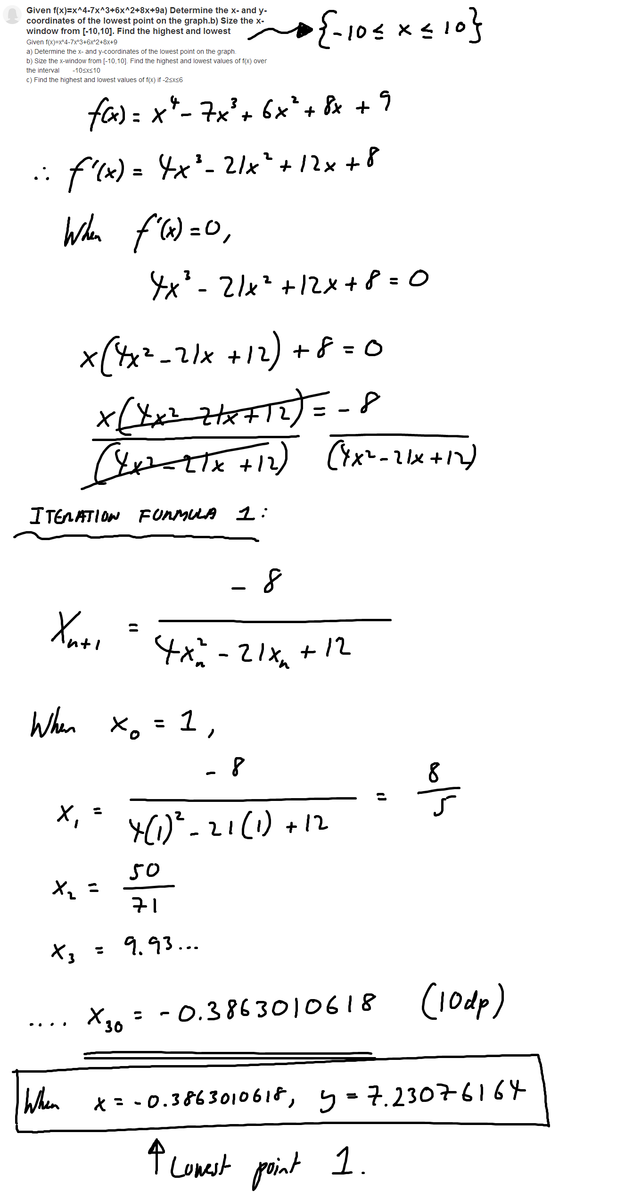 Given f(x)=x^4-7x^3+6x^2+8x+9a) Determine the x- and y-
coordinates of the lowest point on the graph.b) Size the x-
window from [-10,10]. Find the highest and lowest
{-10 ≤ x ≤ 10}
Given f(x)=x^4-7x^3+6x^2+8x+9
a) Determine the x- and y-coordinates of the lowest point on the graph.
b) Size the x-window from [-10,10]. Find the highest and lowest values of f(x) over
the interval -10≤x≤10
c) Find the highest and lowest values of f(x) if -2≤x≤6
f(x) = x⁴ - 7x³ + 6x² + 8x + 9
∴ f'(x) = 4x³ - 21x² + 12x + 8
When f'(x) = 0,
4x³ - 21x² + 12x + 8 = 0
x(4x² - 21x + 12) + 8 = 0
x(4x² - 21x + 12) = - 8
(4x² - 21x + 12) (4x² - 21x + 12)
ITERATION FORMULA 1:
- 8
Xₙ₊₁ =
4xₙ² - 21xₙ + 12
When x₀ = 1,
- 8 8
x₁ = =
4(1)² - 21(1) + 12 5
x₂ = 50
71
x₃ = 9.93...
.... x₃₀ = - 0.3863010618 (10dp)
When x = -0.3863010618, y = 7.23076164
↑ Lowest point 1.